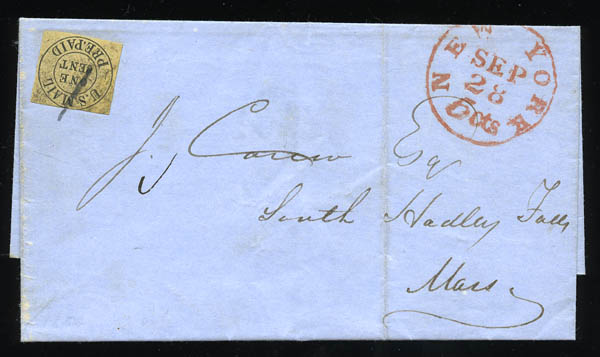 U.S. MAIL PREPAID
ONE
CENT
NEW YORK
SEP
28
cts
J. Carew Esq
South Hadley Falls
Mass.